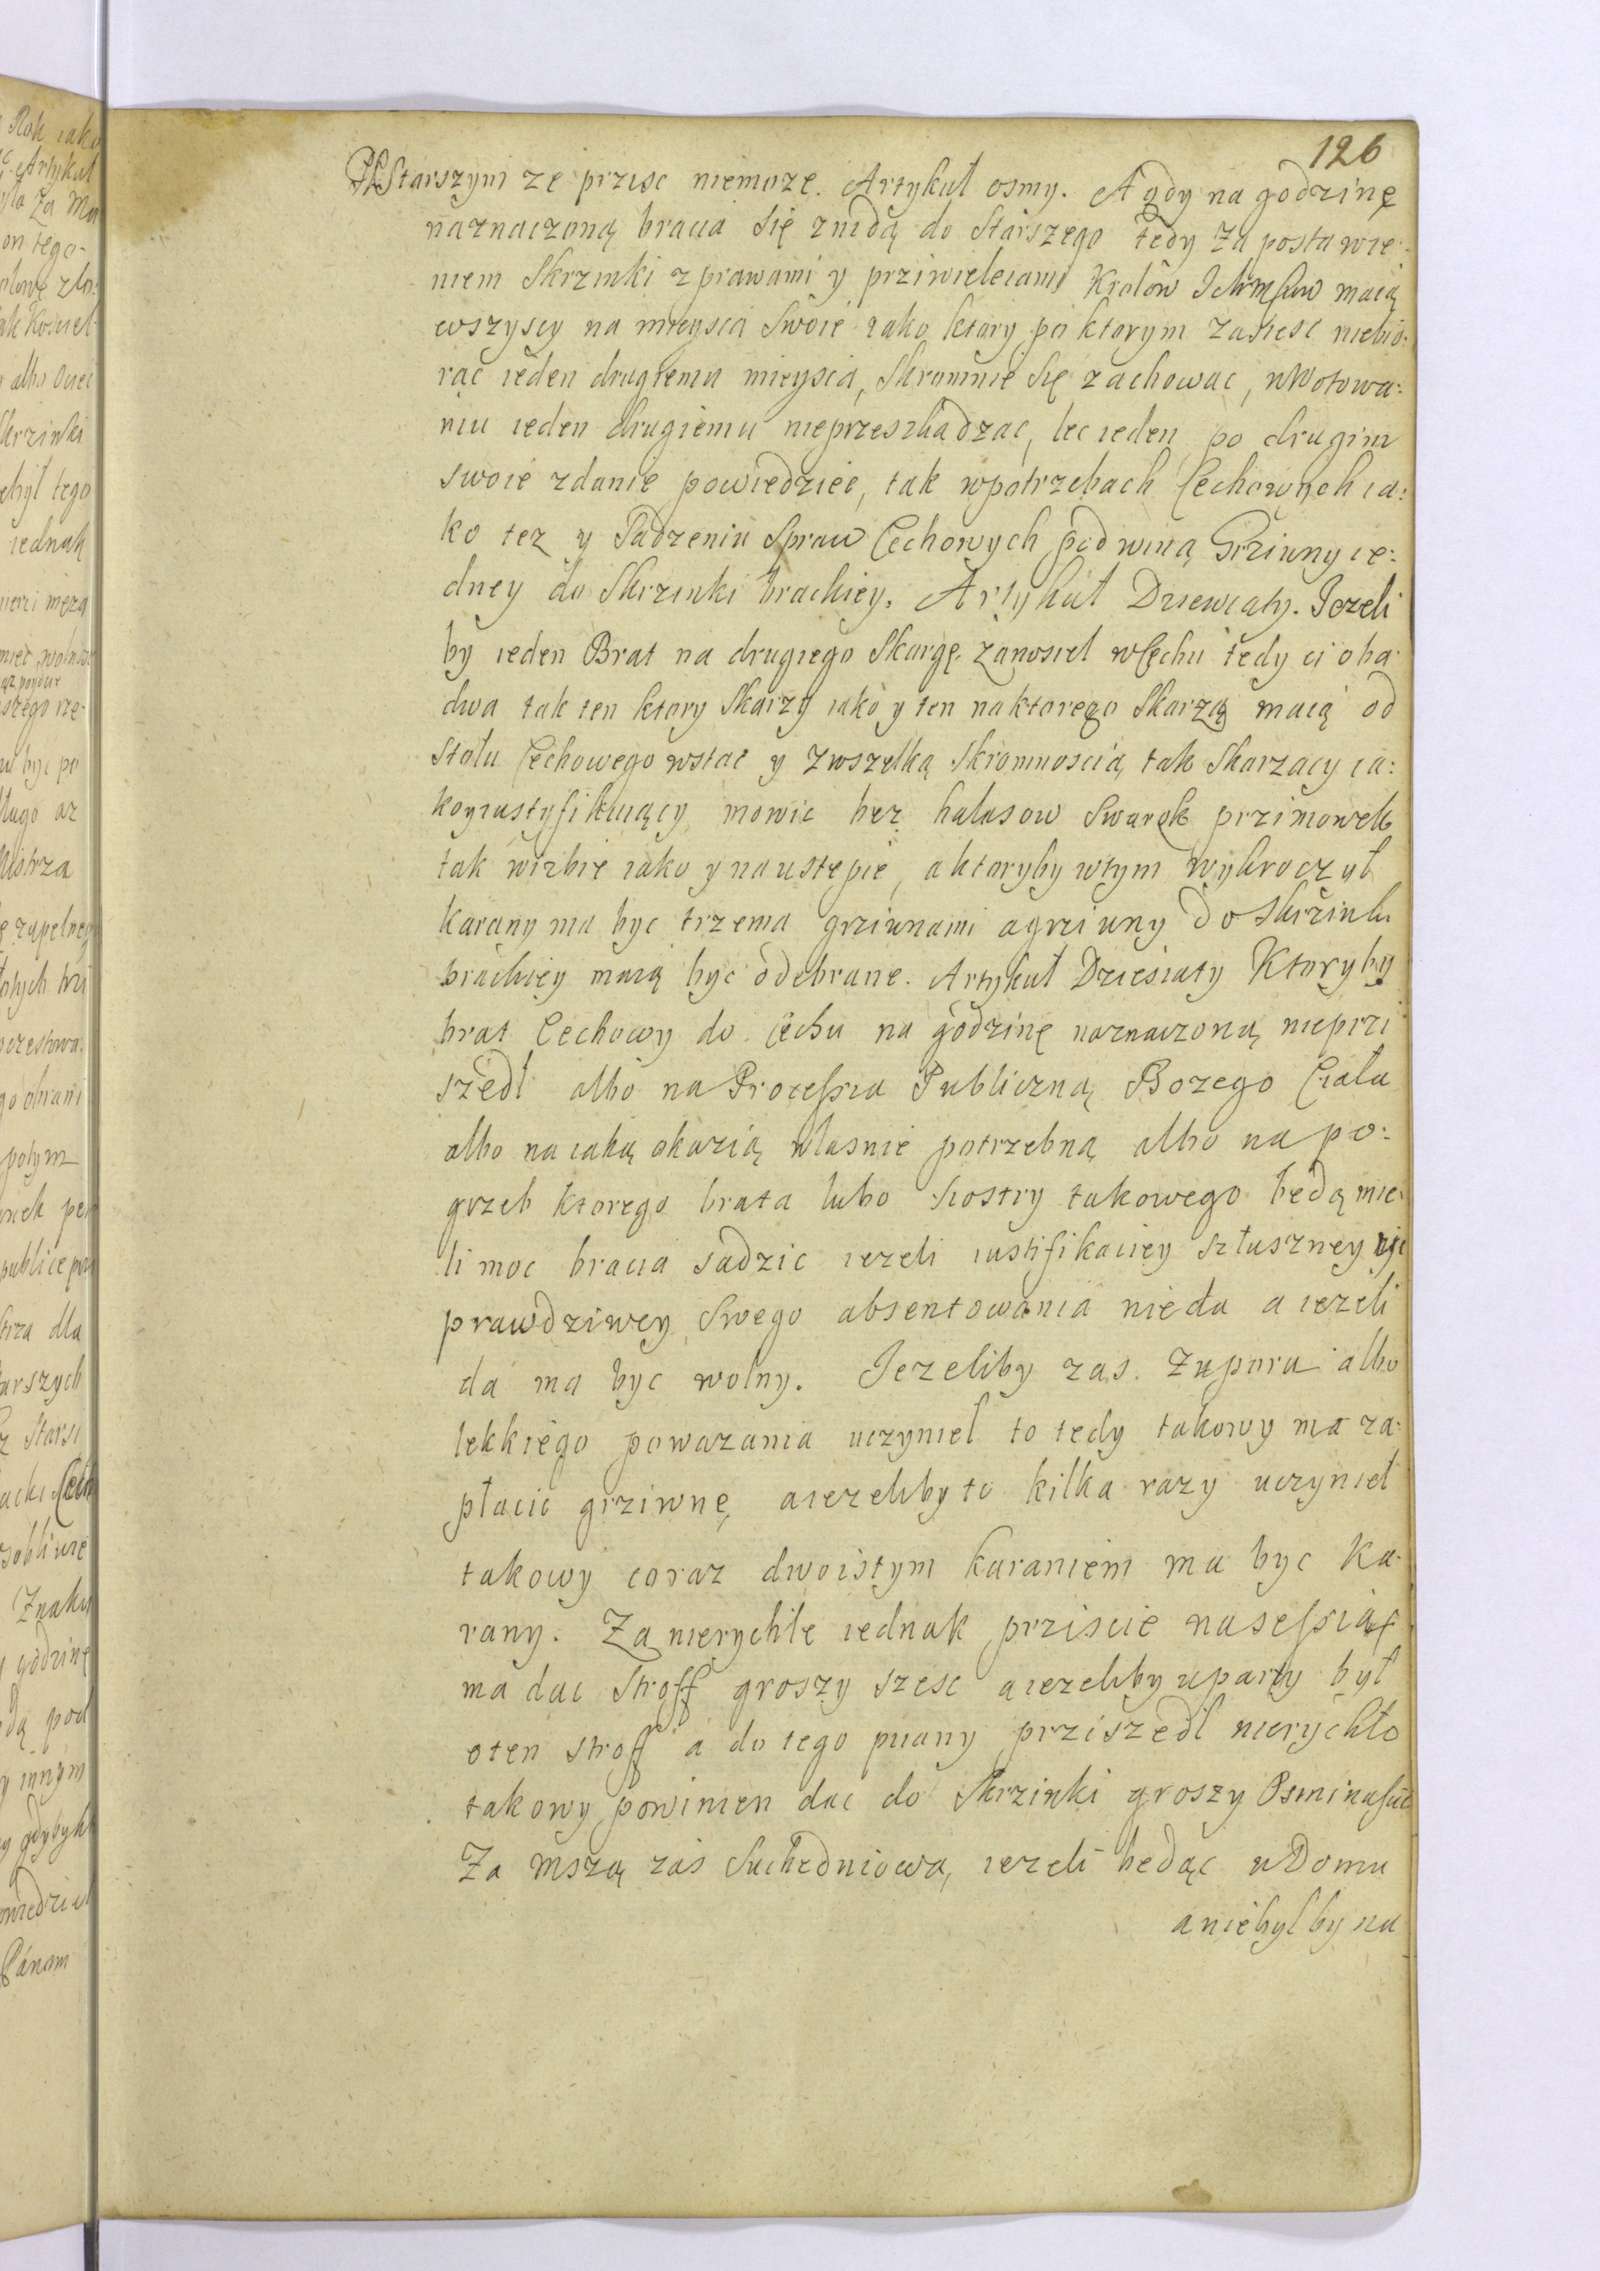 126
Starszym ze przisc niemoze. Artykuł osmy. A gdy na godzinę
naznaczoną bracia się znidą do Starszego tedy za postawie:
niem Skrzinki z prawami y prziwieleiami Krolow Ichmsciow maią
wszyscy na mieysca swoie iako ktory po ktorym zasiesc niebio:
rąc ieden drugiemu mieysca, skromnie się zachowac, uWotowa:
niu ieden drugiemu nieprzeszkadzac, lec ieden po drugim
swoie zdanie powiedziec, tak wpotrzebach Cechowych ia:
ko tez y Sadzeniu Spraw Cechowych pod winą Grziwny ie:
dney do Skrzinki brackiey. Artykuł Dziewiaty. Iezeli
by ieden Brat na drugiego Skargę zanosiel wCechu tedy ci oba
dwa tak ten ktory Skarzy iako y ten naktorego Skarzą maią od
stołu Cechowego wstac y zwszelką skromnoscią tak Skarzacy ia:
koyiustyfikuiący mowic bez halasow Swarek przimowek
tak wizbie iako y na ustepie, a ktoryby wtym wykroczył
karany ma byc trzema grziwnami agrziwny do Skrzinki
brackiey maią byc odebrane. Artykuł Dziesiaty Ktoryby
brat Cechowy do Cechu na godzinę naznaczoną nieprzi
szedl albo na Processia Publiczną Bozego Ciała
albo na iaką okazią własnie potrzebną albo na po:
grzeb ktorego brata lubo siostry takowego bedą mie:
li moc bracia sadzic iezeli iustifikaciey szłuszney y
prawdziwey swego absentowania nieda a iezeli
da ma byc wolny. Iezeliby zas zuporu albo
lekkiego powazania uczyniel to tedy takowy ma za:
płacic grziwnę, aiezeliby to kilka razy uczynieł
takowy coraz dwoistym karaniem ma byc ka:
rany. Za nierychłe iednak prziscie nasessią
ma dac stroff groszy szesc aiezeliby uparty był
oten stroff a do tego piiany prziszedl nierychło
takowy powinien dac do Skrzinki groszy Osminascie
Za mszą zas Suchedniowa, iezeli bedąc uDomu
aniebył by na